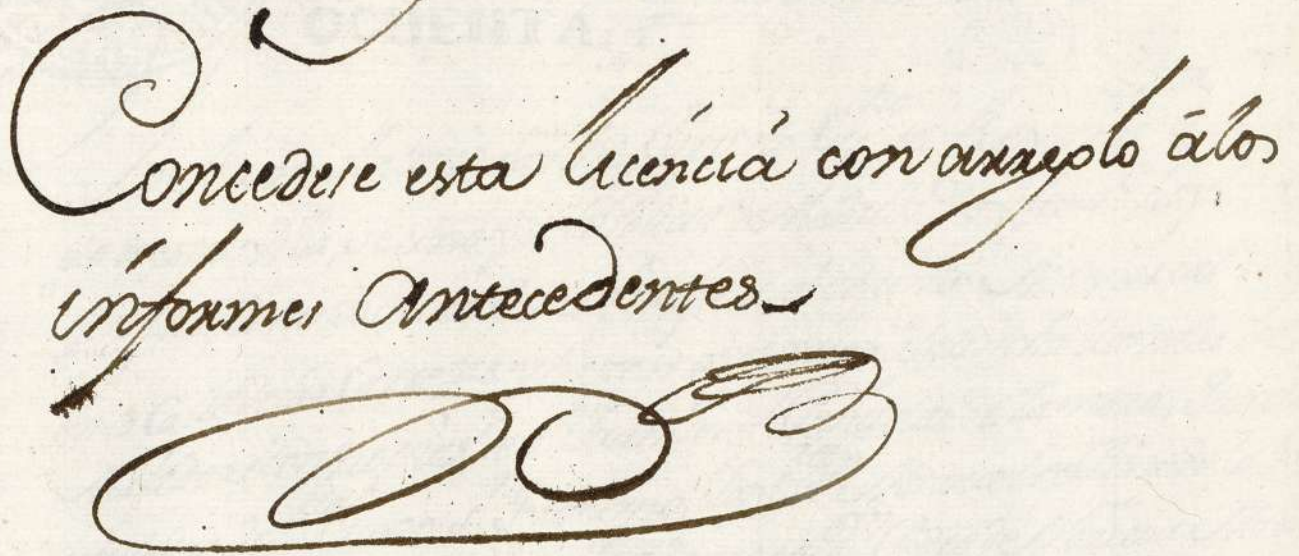 Concedese esta licencia con arreglo â los
informes Antecedentes